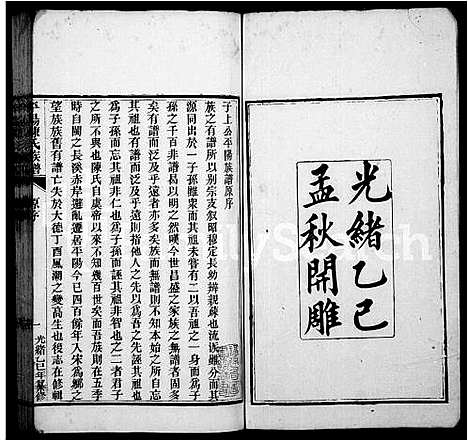 光緒乙巳
孟秋開雕
子上公平陽族譜原序
族之有譜所以别宗支叙昭穆定長幼辨親疎也流派雖分而其
源同出於一子孫雖衆而其祖無二吾以祖之一身而為子
孫之千百非譜曷以明之然嘆今世昌盛之家族之無譜者固多
矣有譜而泛及乎遠者亦多矣族而無譜則不知本始之所自忘
其祖也有譜而泛及乎遠則指他人之先以為吾之先世誣其祖也
為子孫而忘其祖非仁也為子孫而誣其祖非智也之二者君子
之所不與也陳氏自虞帝以來不知幾百世矣而吾族則在五季
時自閩之長溪赤岸避亂遷居平陽今已四百餘年人宋為鄉之
望族族舊有譜亡失於大德丁酉風潮之變高生也後志在修輯
平陽陳氏族譜
原序
一
光緒乙巳年纂修